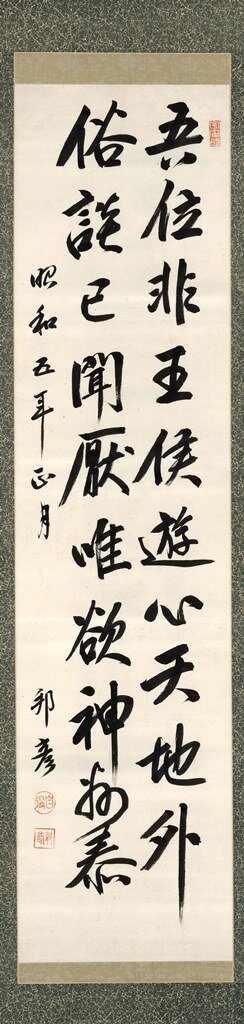 吾位非王侯遊心天地外
俗談已聞厭唯欲神州泰
昭和五年正月
邦彦